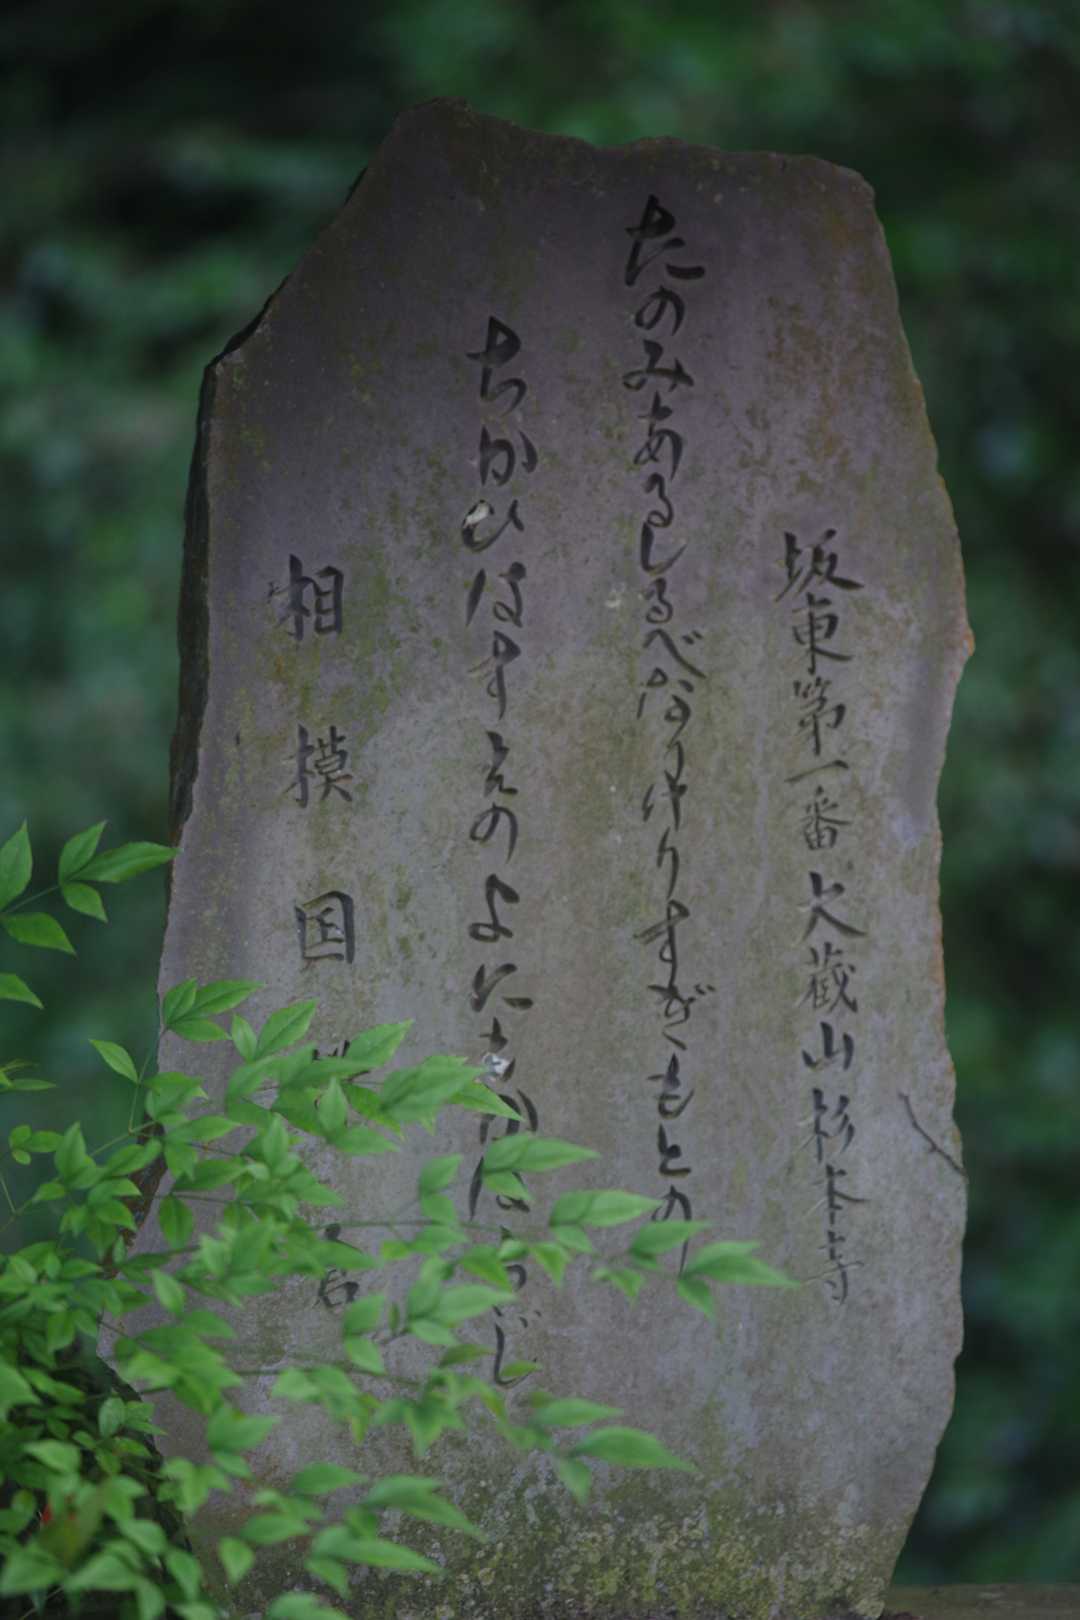 坂東第一番大蔵山杉本寺
たのみあるしるべなりけりすぎもとの
ちかひはすえのよにもかはらじ
相模国